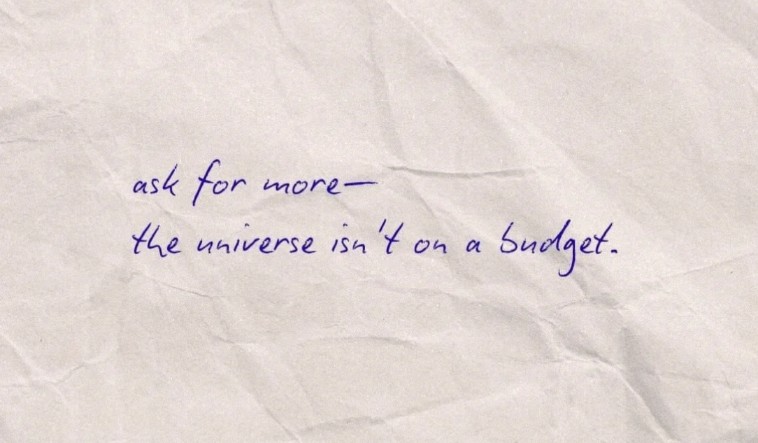 ask for more—
the universe isn't on a budget.